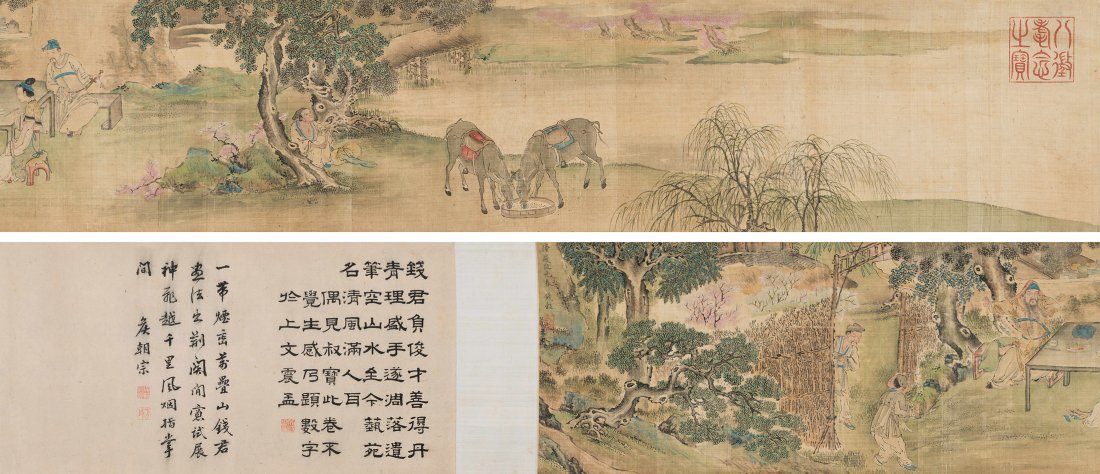 八徵耄念之寶
錢君負俊才善得丹
青理盛手遂凋落遺
筆空山水至今藝苑
名清風滿人目
偶見叔寶此卷不
覺生感乃題數字
於上文震孟
一帶煙巒萬疊山錢君
畫法出荊關閒窗試展
神飛越千里風烟指掌
間
侯朝宗